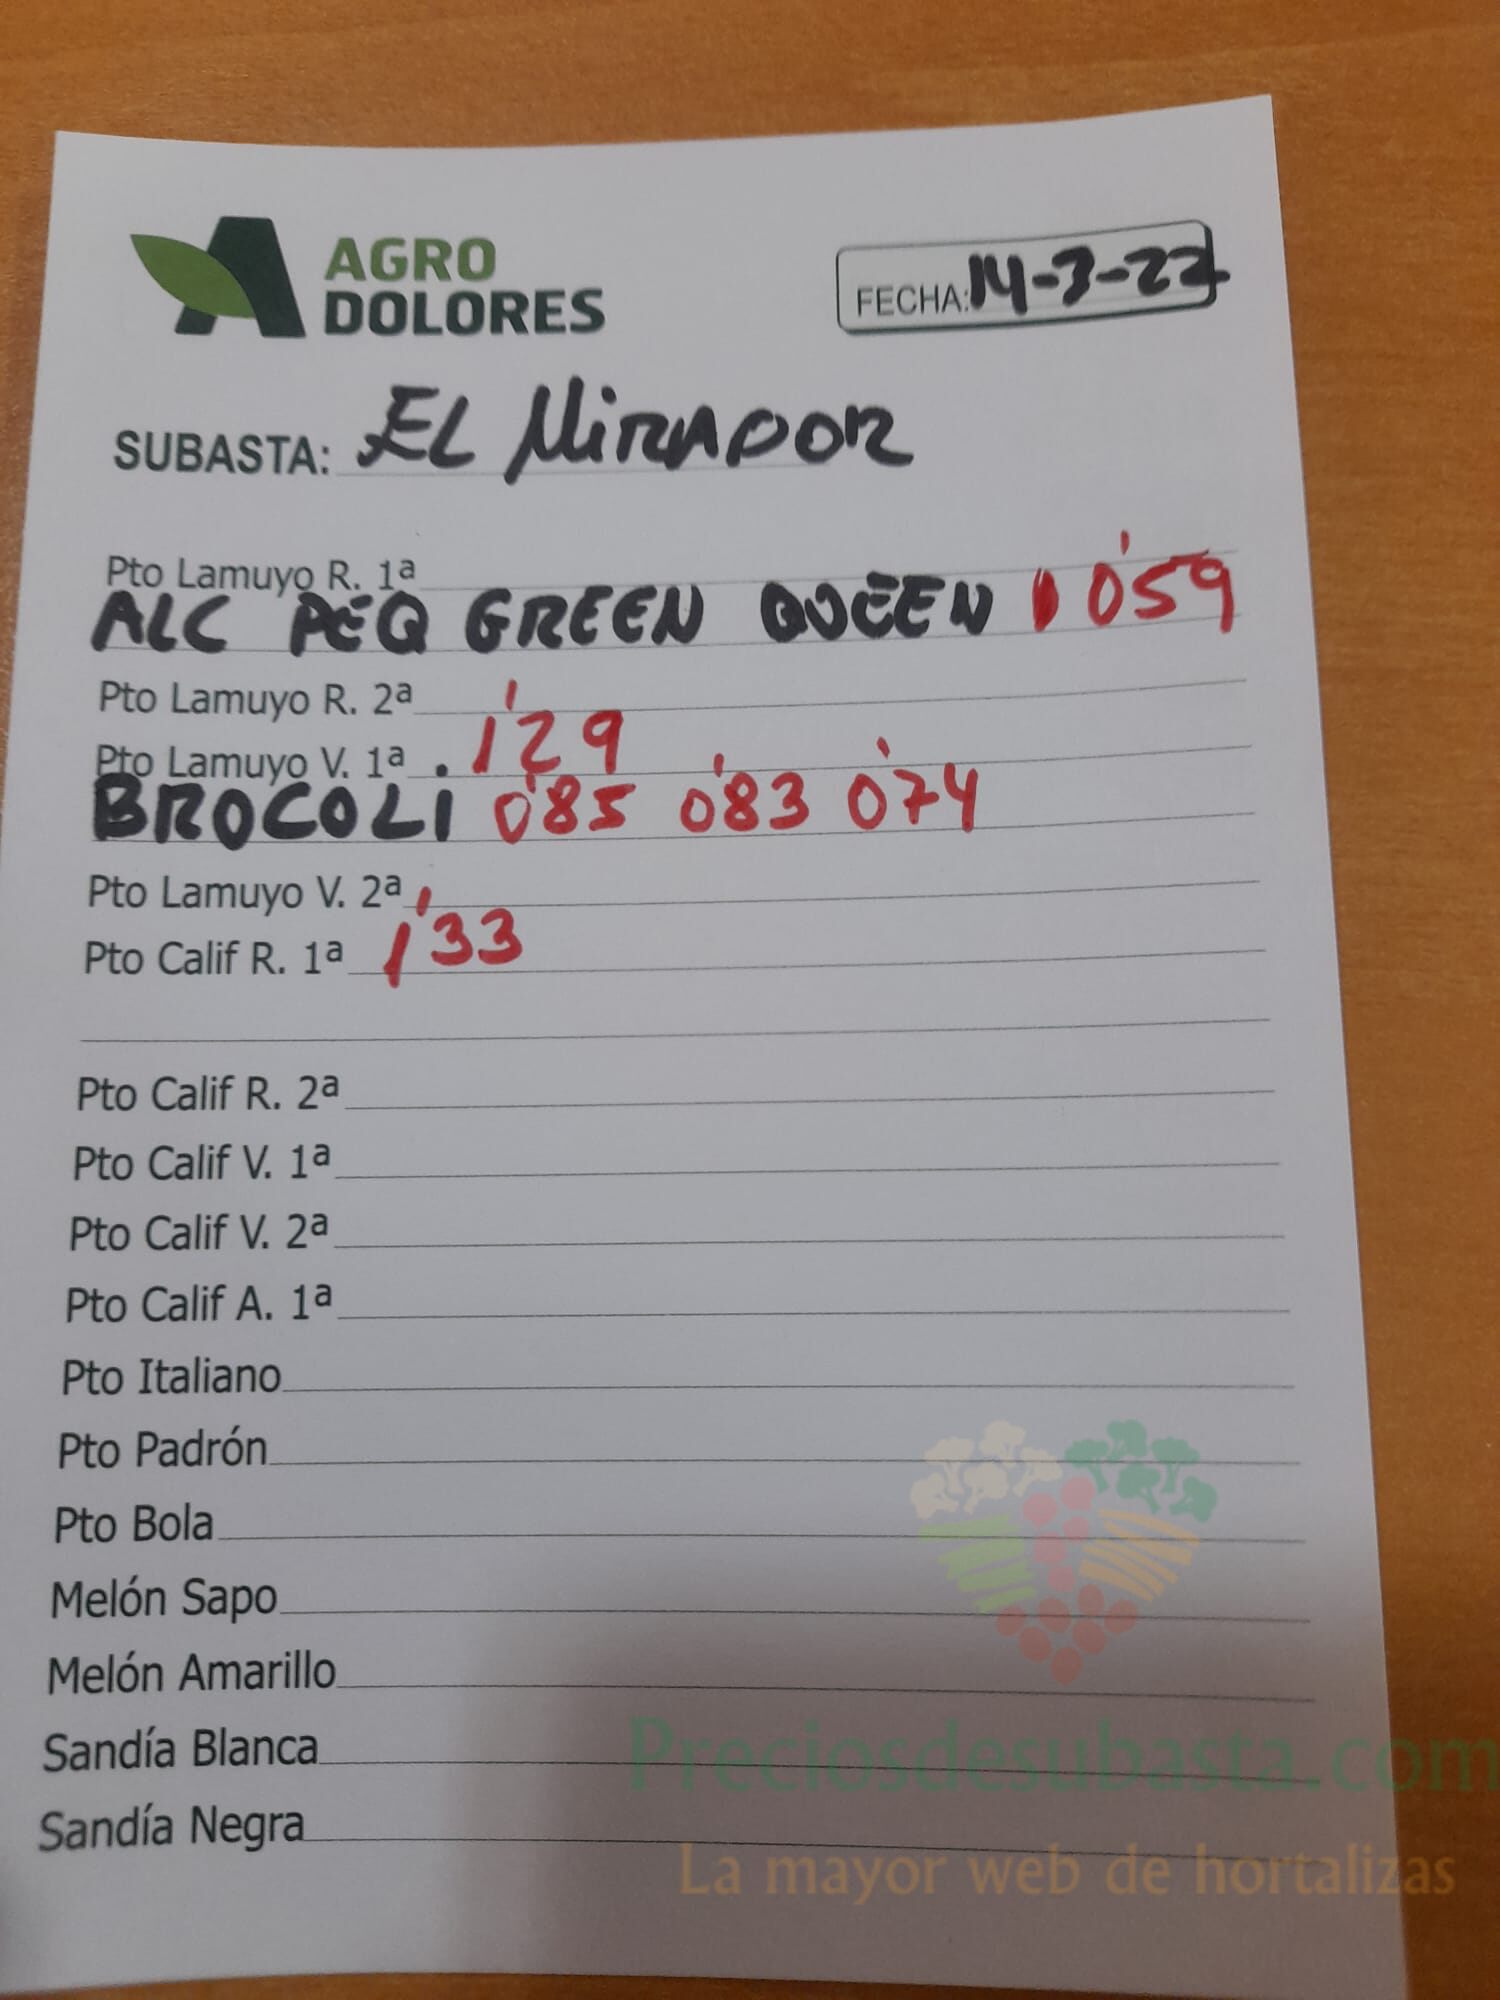 AGRO
DOLORES
FECHA: 14-3-22
SUBASTA: EL MIRADOR
Pto Lamuyo R. 1ª
ALC PEQ GREEN QUEEN 0'59
Pto Lamuyo R. 2ª
Pto Lamuyo V. 1ª . 1'29
BROCOLI 0'85 0'83 0'74
Pto Lamuyo V. 2ª
Pto Calif R. 1ª 1'33
Pto Calif R. 2ª
Pto Calif V. 1ª
Pto Calif V. 2ª
Pto Calif A. 1ª
Pto Italiano
Pto Padrón
Pto Bola
Melón Sapo
Melón Amarillo
Sandía Blanca
Sandía Negra
Preciosdesubasta.com
La mayor web de hortalizas